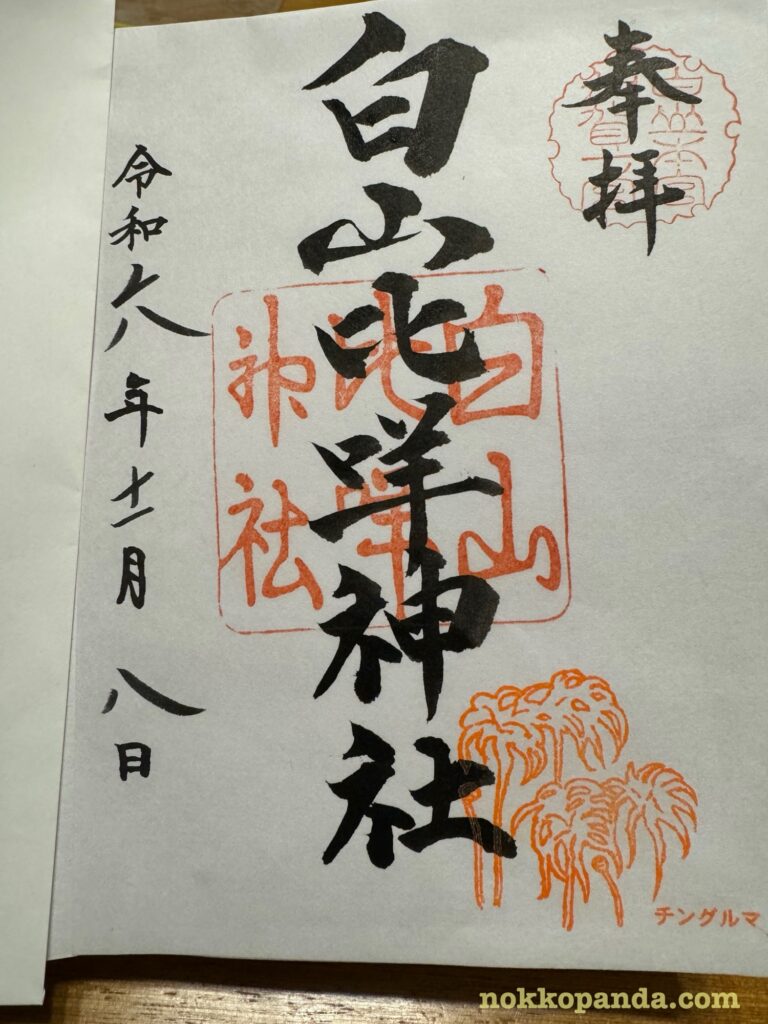 奉拝
白山比咩神社
白山
比咩
神社
令和六年十一月八日
チングルマ
nokkopanda.com